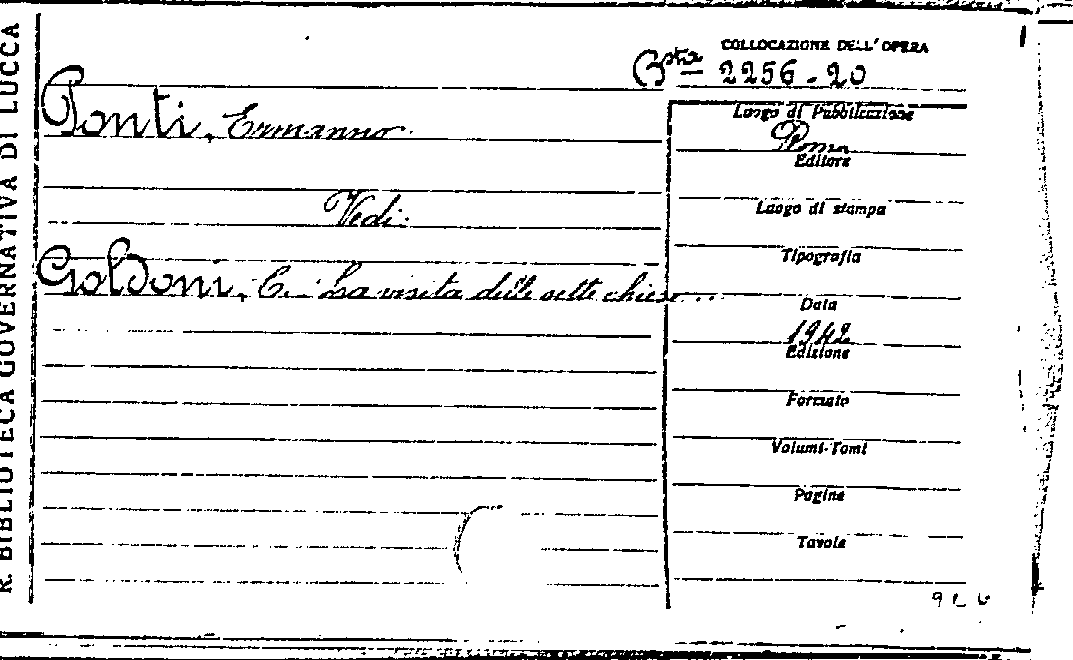 R. BIBLIOTECA GOVERNATIVA DI LUCCA
COLLOCAZIONE DELL'OPERA
Bsta 2256-20
Ponti, Ermanno.
Vedi:
Goldoni, C. La visita delle sette chiese...
Luogo di Pubblicazione
Roma
Editore
Luogo di stampa
Tipografia
Data
1942
Edizione
Formato
Volumi-Tomi
Pagine
Tavole